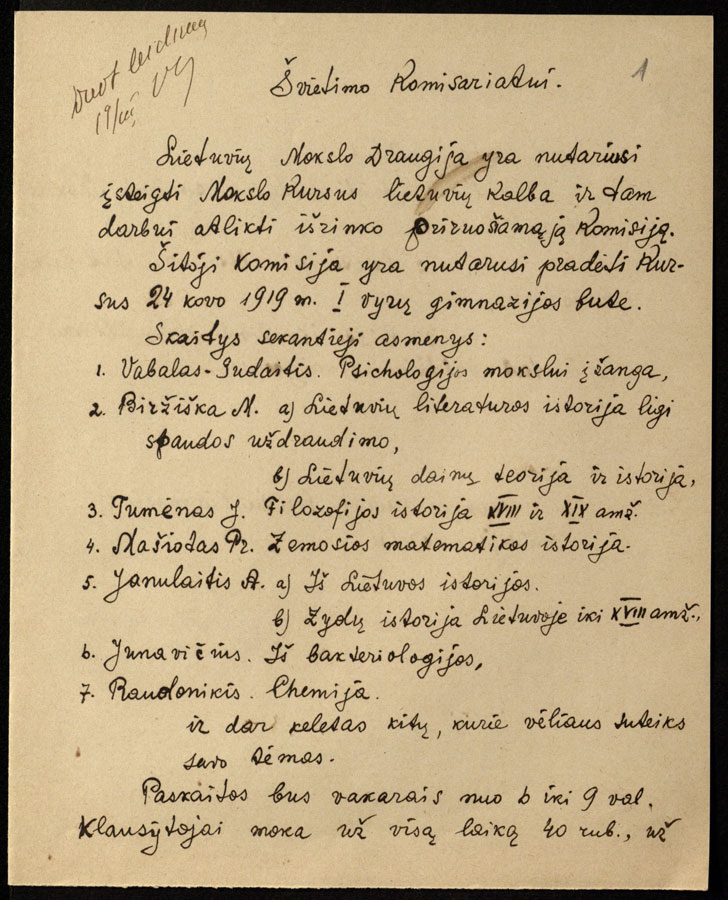 Duot leidimą
19/III
1
Švietimo Komisariatui.
Lietuvių Mokslo Draugija yra nutariusi
įsteigti Mokslo Kursus lietuvių kalba ir tam
darbui atlikti išrinko priruošiamąją Komisiją.
Šitoji Komisija yra nutarusi pradėti Kur-
sus 24 kovo 1919 m. I vyrų gimnazijos bute.
Skaitys sekantieji asmenys:
1. Vabalas-Gudaitis. Psichologijos mokslui įžanga,
2. Biržiška M. a) Lietuvių literaturos istorija ligi
spaudos uždraudimo,
b) Lietuvių dainų teorija ir istorija,
3. Tumėnas J. Filozofijos istorija XVIII ir XIX amž.
4. Mašiotas Pr. Žemosios matematikos istorija.
5. Janulaitis A. a) Iš Lietuvos istorijos.
b) Žydų istorija Lietuvoje iki XVIII amž.,
6. Junavičius. Iš bakteriologijos,
7. Raudonikis. Chemija.
ir dar keletas kitų, kurie vėliaus suteiks
savo tėmas.
Paskaitos bus vakarais nuo 6 iki 9 val.
Klausytojai moka už visą laiką 40 rub., už